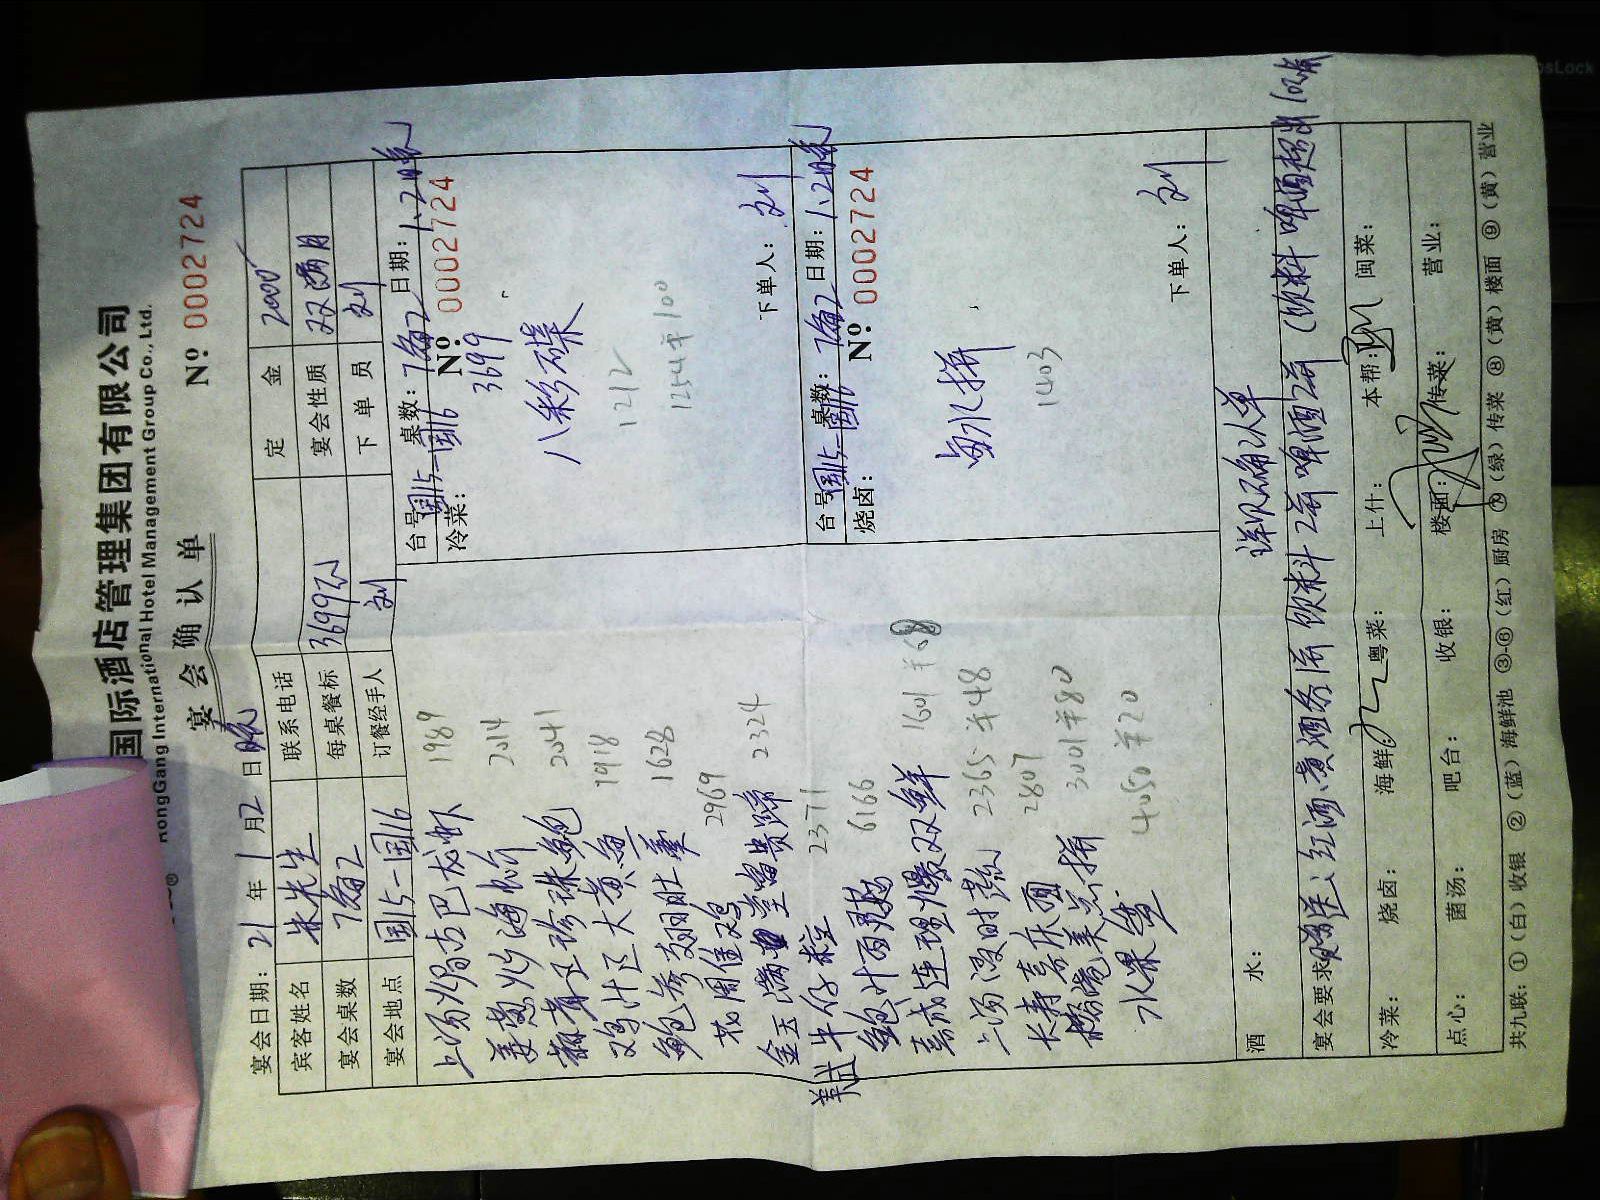 国际酒店管理集团有限公司
HongGang International Hotel Management Group Co., Ltd.
宴会确认单
№ 0002724
宴会日期：21年1月2日晚
宾客姓名 朱先生 联系电话 定金 2000
宴会桌数 7备2 每桌餐标 3699元 宴会性质 双满月
宴会地点 国15-国16 订餐经手人 刘 下单员 刘
上汤焗古巴龙虾 1989
姜葱炒海 2014
珍珠鲍 2041
鸡汁 大黄鱼 1918
鲍参翅肚羹 1628
花 鸡 2969
金玉满堂富贵蹄 2324
美式牛仔粒 2371
鲍汁 6166
连理爆双鲜 1601 ¥68
上汤浸时蔬 2365 ¥48
长寿喜庆面 2807
美点拼 3001 ¥80
水果 4050 ¥20
台号 国15-国16 桌数：7备2 日期：1.2晚
冷菜： № 0002724
3699
八彩碟
1212
1254 ¥100
下单人：刘
台号 国15-国16 桌数：7备2 日期：1.2晚
烧卤： № 0002724
卤水拼
1403
下单人：刘
酒水： 详见确认单
宴会要求 赠送：红酒.黄酒各 饮料2 啤酒2 (饮料 啤酒超出
冷菜： 烧卤： 海鲜： 粤菜： 上什： 本帮： 闽菜：
点心： 菌汤： 吧台： 收银： 楼面： 传菜： 营业：
共九联：①（白）收银 ②（蓝）海鲜池 ③-⑥（红）厨房 ⑦（绿）传菜 ⑧（黄）楼面 ⑨（黄）营业